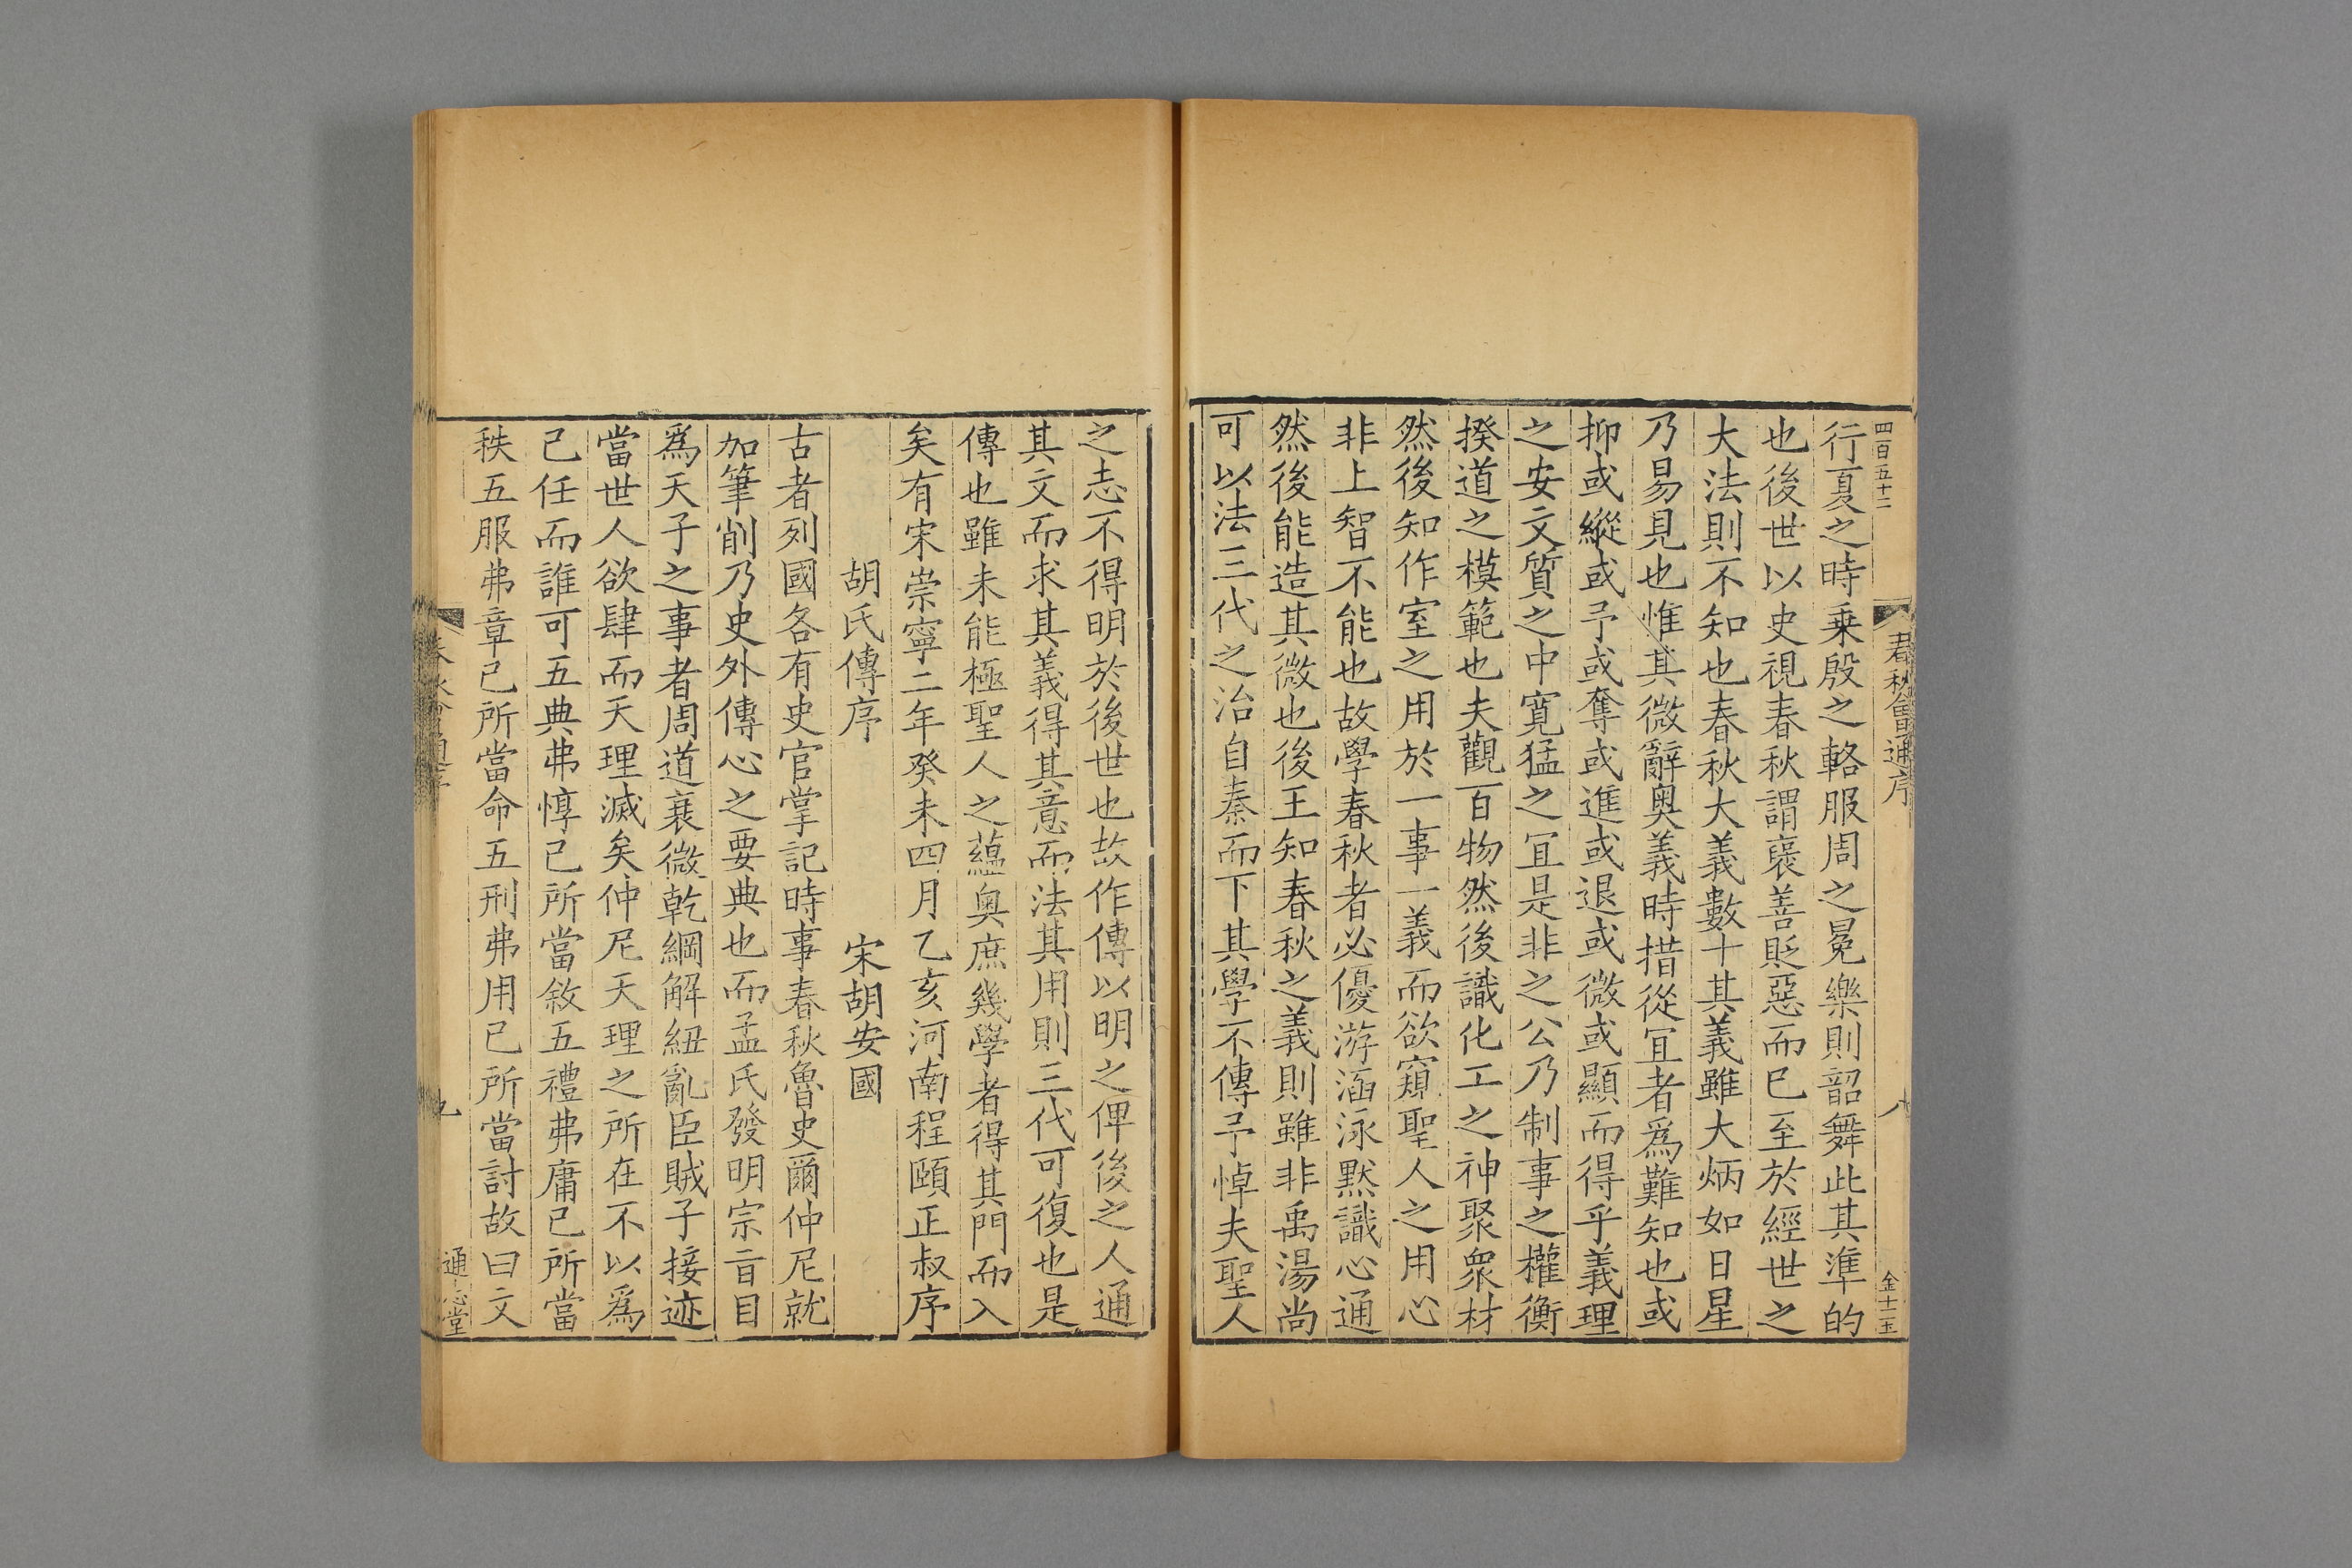 四百五十二
春秋會通序
八
金十二玉
行夏之時乗殷之輅服周之冕樂則韶舞此其準的
也後世以史視春秋謂襃善貶惡而已至於經世之
大法則不知也春秋大義數十其義雖大炳如日星
乃易見也惟其微辭奥義時措從冝者爲難知也或
抑或縱或予或奪或進或退或微或顯而得乎義理
之安文質之中寛猛之冝是非之公乃制事之權衡
揆道之模範也夫觀百物然後識化工之神聚衆材
然後知作室之用於一事一義而欲窺聖人之用心
非上智不能也故學春秋者必優游涵泳黙識心通
然後能造其微也後王知春秋之義則雖非禹湯尚
可以法三代之治自秦而下其學不傳予悼夫聖人
之志不得明於後世也故作傳以明之俾後之人通
其文而求其義得其意而法其用則三代可復也是
傳也雖未能極聖人之蘊奥庶幾學者得其門而入
矣有宋崇寧二年癸未四月乙亥河南程頤正叔序
胡氏傳序
宋胡安國
古者列國各有史官掌記時事春秋魯史爾仲尼就
加筆削乃史外傳心之要典也而孟氏發明宗旨目
爲天子之事者周道衰微乾綱解紐亂臣賊子接迹
當世人欲肆而天理滅矣仲尼天理之所在不以爲
己任而誰可五典弗惇己所當敘五禮弗庸己所當
秩五服弗章己所當命五刑弗用己所當討故曰文
九
通志堂